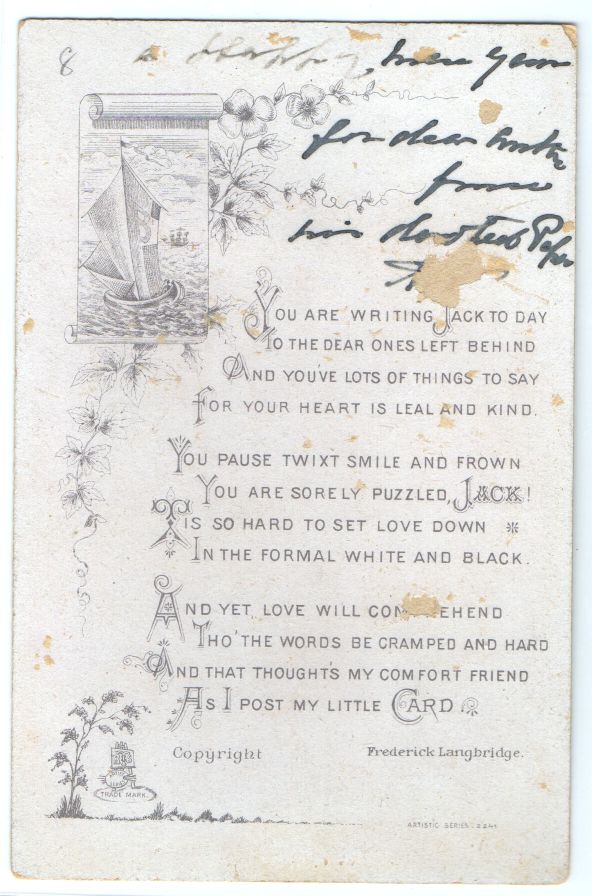 8
a Happy new year
for dear
from
his devoted
YOU ARE WRITING JACK TO DAY
TO THE DEAR ONES LEFT BEHIND
AND YOU'VE LOTS OF THINGS TO SAY
FOR YOUR HEART IS LEAL AND KIND.
YOU PAUSE TWIXT SMILE AND FROWN
YOU ARE SORELY PUZZLED, JACK!
TIS SO HARD TO SET LOVE DOWN
IN THE FORMAL WHITE AND BLACK.
AND YET, LOVE WILL COM EHEND
THO' THE WORDS BE CRAMPED AND HARD
AND THAT THOUGHT'S MY COMFORT FRIEND
AS I POST MY LITTLE CARD.
Copyright Frederick Langbridge.
TRADE MARK.
ARTISTIC SERIES. 2241